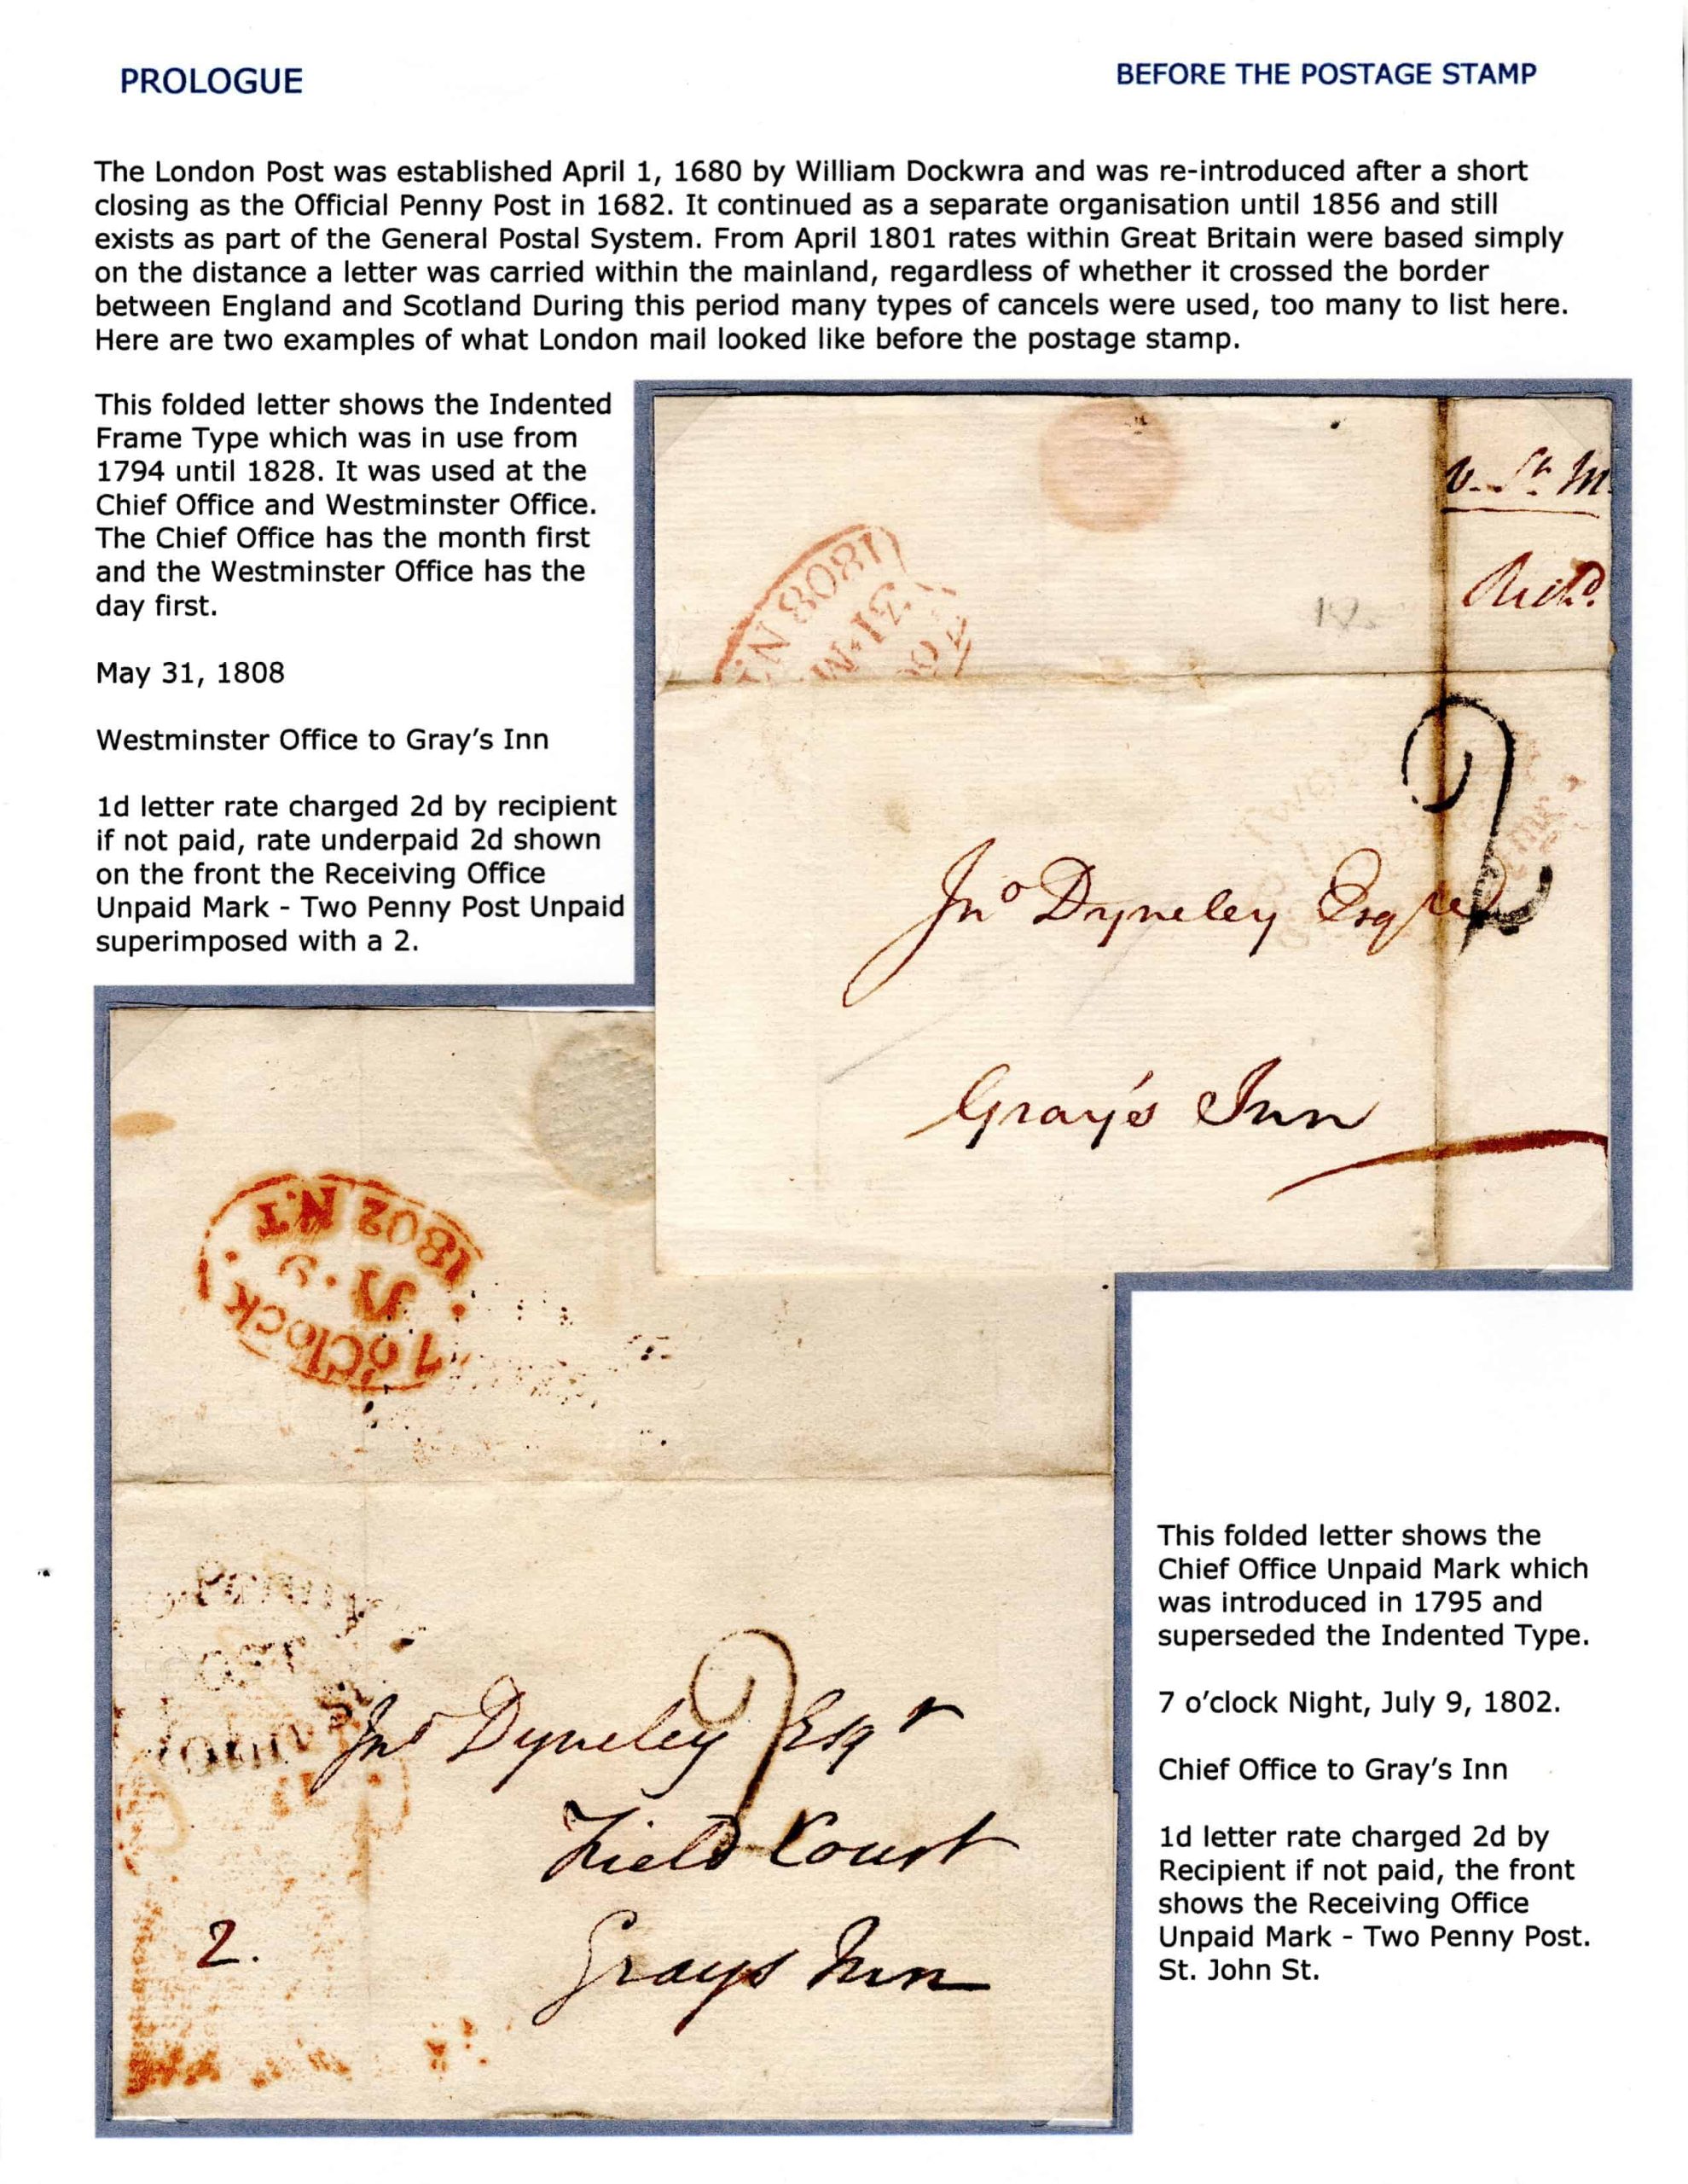 PROLOGUE
BEFORE THE POSTAGE STAMP
The London Post was established April 1, 1680 by William Dockwra and was re-introduced after a short
closing as the Official Penny Post in 1682. It continued as a separate organisation until 1856 and still
exists as part of the General Postal System. From April 1801 rates within Great Britain were based simply
on the distance a letter was carried within the mainland, regardless of whether it crossed the border
between England and Scotland During this period many types of cancels were used, too many to list here.
Here are two examples of what London mail looked like before the postage stamp.
This folded letter shows the Indented
Frame Type which was in use from
1794 until 1828. It was used at the
Chief Office and Westminster Office.
The Chief Office has the month first
and the Westminster Office has the
day first.
May 31, 1808
Westminster Office to Gray's Inn
1d letter rate charged 2d by recipient
if not paid, rate underpaid 2d shown
on the front the Receiving Office
Unpaid Mark - Two Penny Post Unpaid
superimposed with a 2.
v. St. M
Richd.
1808 N
31 M
2
Jno Dyneley Esqre
Gray's Inn
7 oClock
JY. 9
1802 N.T
Penny
Post
Jno Dyneley Esqr
2
Field Court
2.
Grays Inn
This folded letter shows the
Chief Office Unpaid Mark which
was introduced in 1795 and
superseded the Indented Type.
7 o'clock Night, July 9, 1802.
Chief Office to Gray's Inn
1d letter rate charged 2d by
Recipient if not paid, the front
shows the Receiving Office
Unpaid Mark - Two Penny Post.
St. John St.